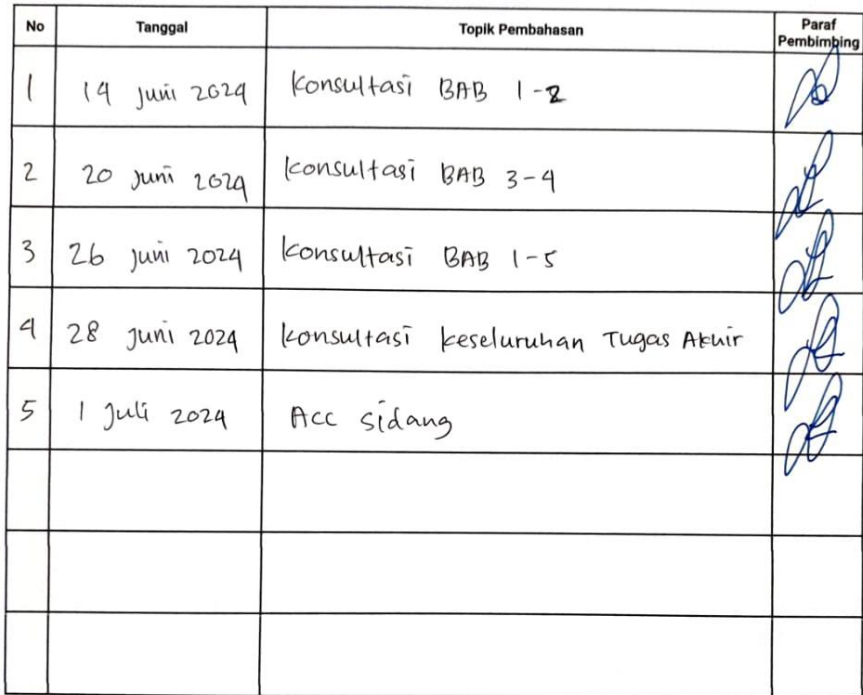 No Tanggal Topik Pembahasan Paraf Pembimbing
1 14 Juni 2024 Konsultasi BAB 1-2
2 20 Juni 2024 Konsultasi BAB 3-4
3 26 Juni 2024 Konsultasi BAB 1-5
4 28 Juni 2024 Konsultasi keseluruhan Tugas Akhir
5 1 Juli 2024 Acc sidang